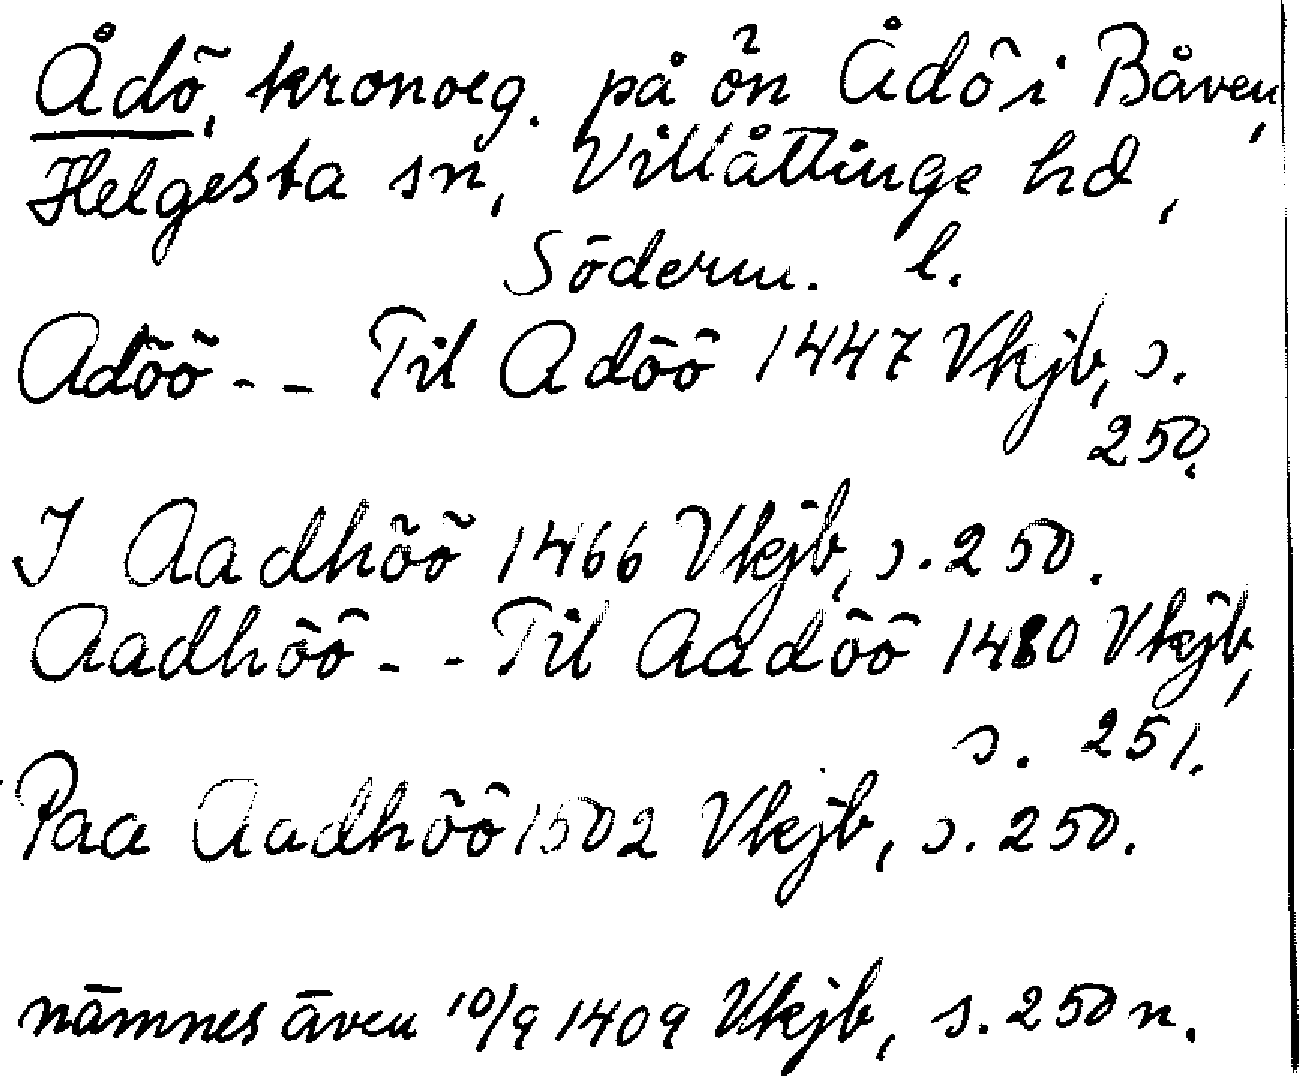 Ådö, kronoeg. på ön Ådö i Båven,
Helgesta sn, Villåttinge hd,
Söderm. l.
Adöö - - Til Adöö 1447 Vkjb, s.
250.
I Aadhöö 1466 Vkjb, s. 250.
Aadhöö - - Til Aadöö 1480 Vkjb,
s. 251.
Paa Aadhöö 1502 Vkjb, s. 250.
nämnes även 10/9 1409 Vkjb, s. 250 n.